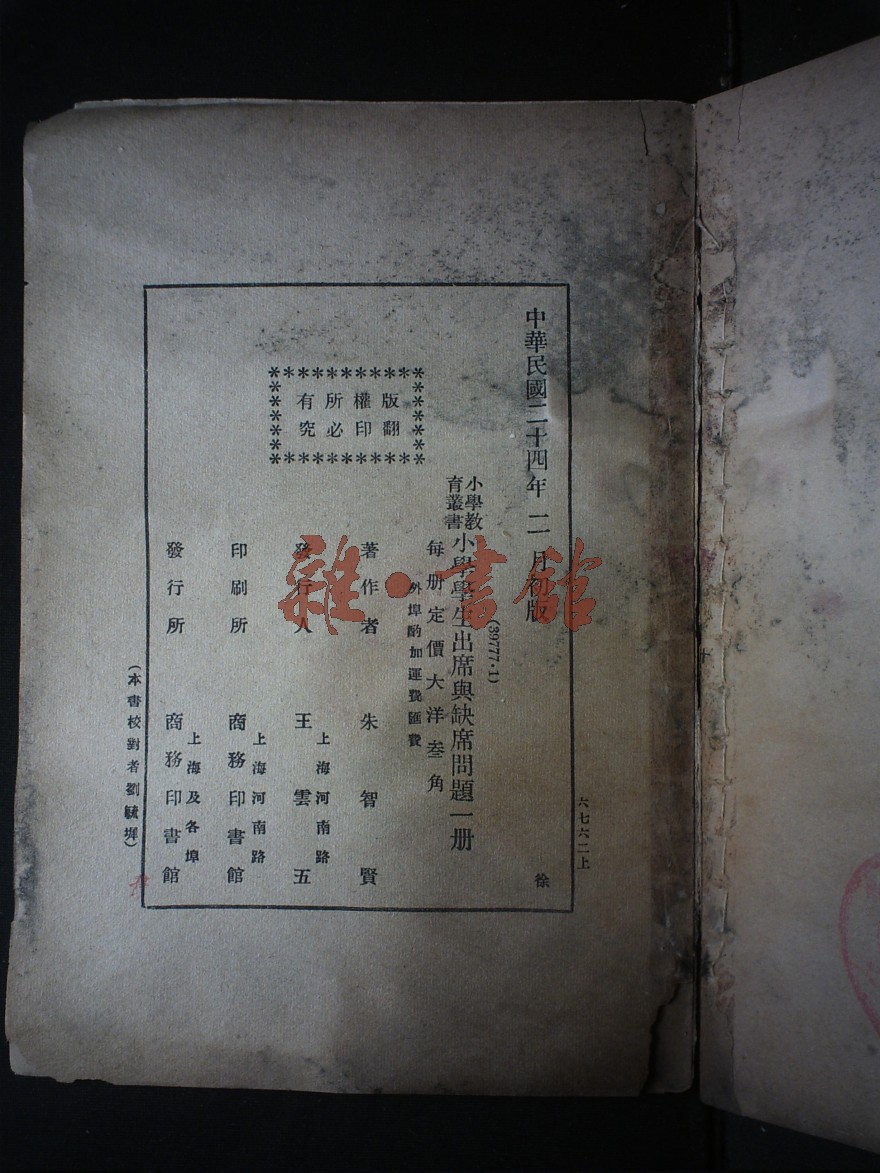 六七六二上
中華民國二十四年二月初版
徐
(39777·1)
小學教育叢書
小學學生出席與缺席問題一册
每册定價大洋叁角
外埠酌加運費匯費
版權所有
翻印必究
著作者 朱智賢
上海河南路
發行人 王雲五
上海河南路
印刷所 商務印書館
上海及各埠
發行所 商務印書館
(本書校對者劉毓墀)
雜·書館